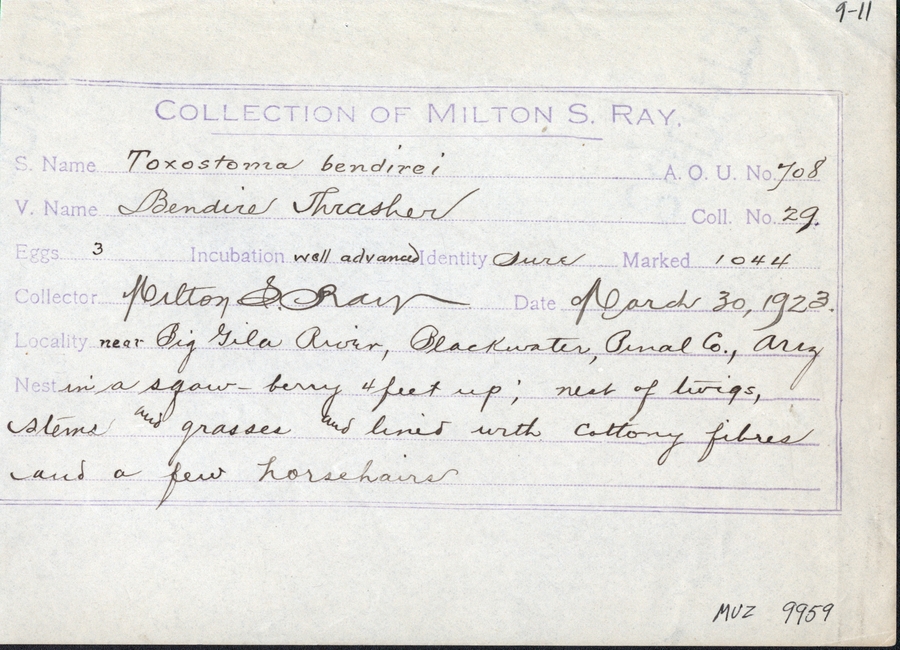 9-11
COLLECTION OF MILTON S. RAY.
S. Name Toxostoma bendirei A. O. U. No. 708
V. Name Bendire Thrasher Coll. No. 29.
Eggs 3 Incubation well advanced Identity sure Marked 1044
Collector Milton S. Ray Date March 30, 1923.
Locality near Big Gila River, Blackwater, Pinal Co., Ariz
Nest in a sqaw-berry 4 feet up; nest of twigs,
stems and grasses and lined with cottony fibres
and a few horsehairs
MVZ 9959